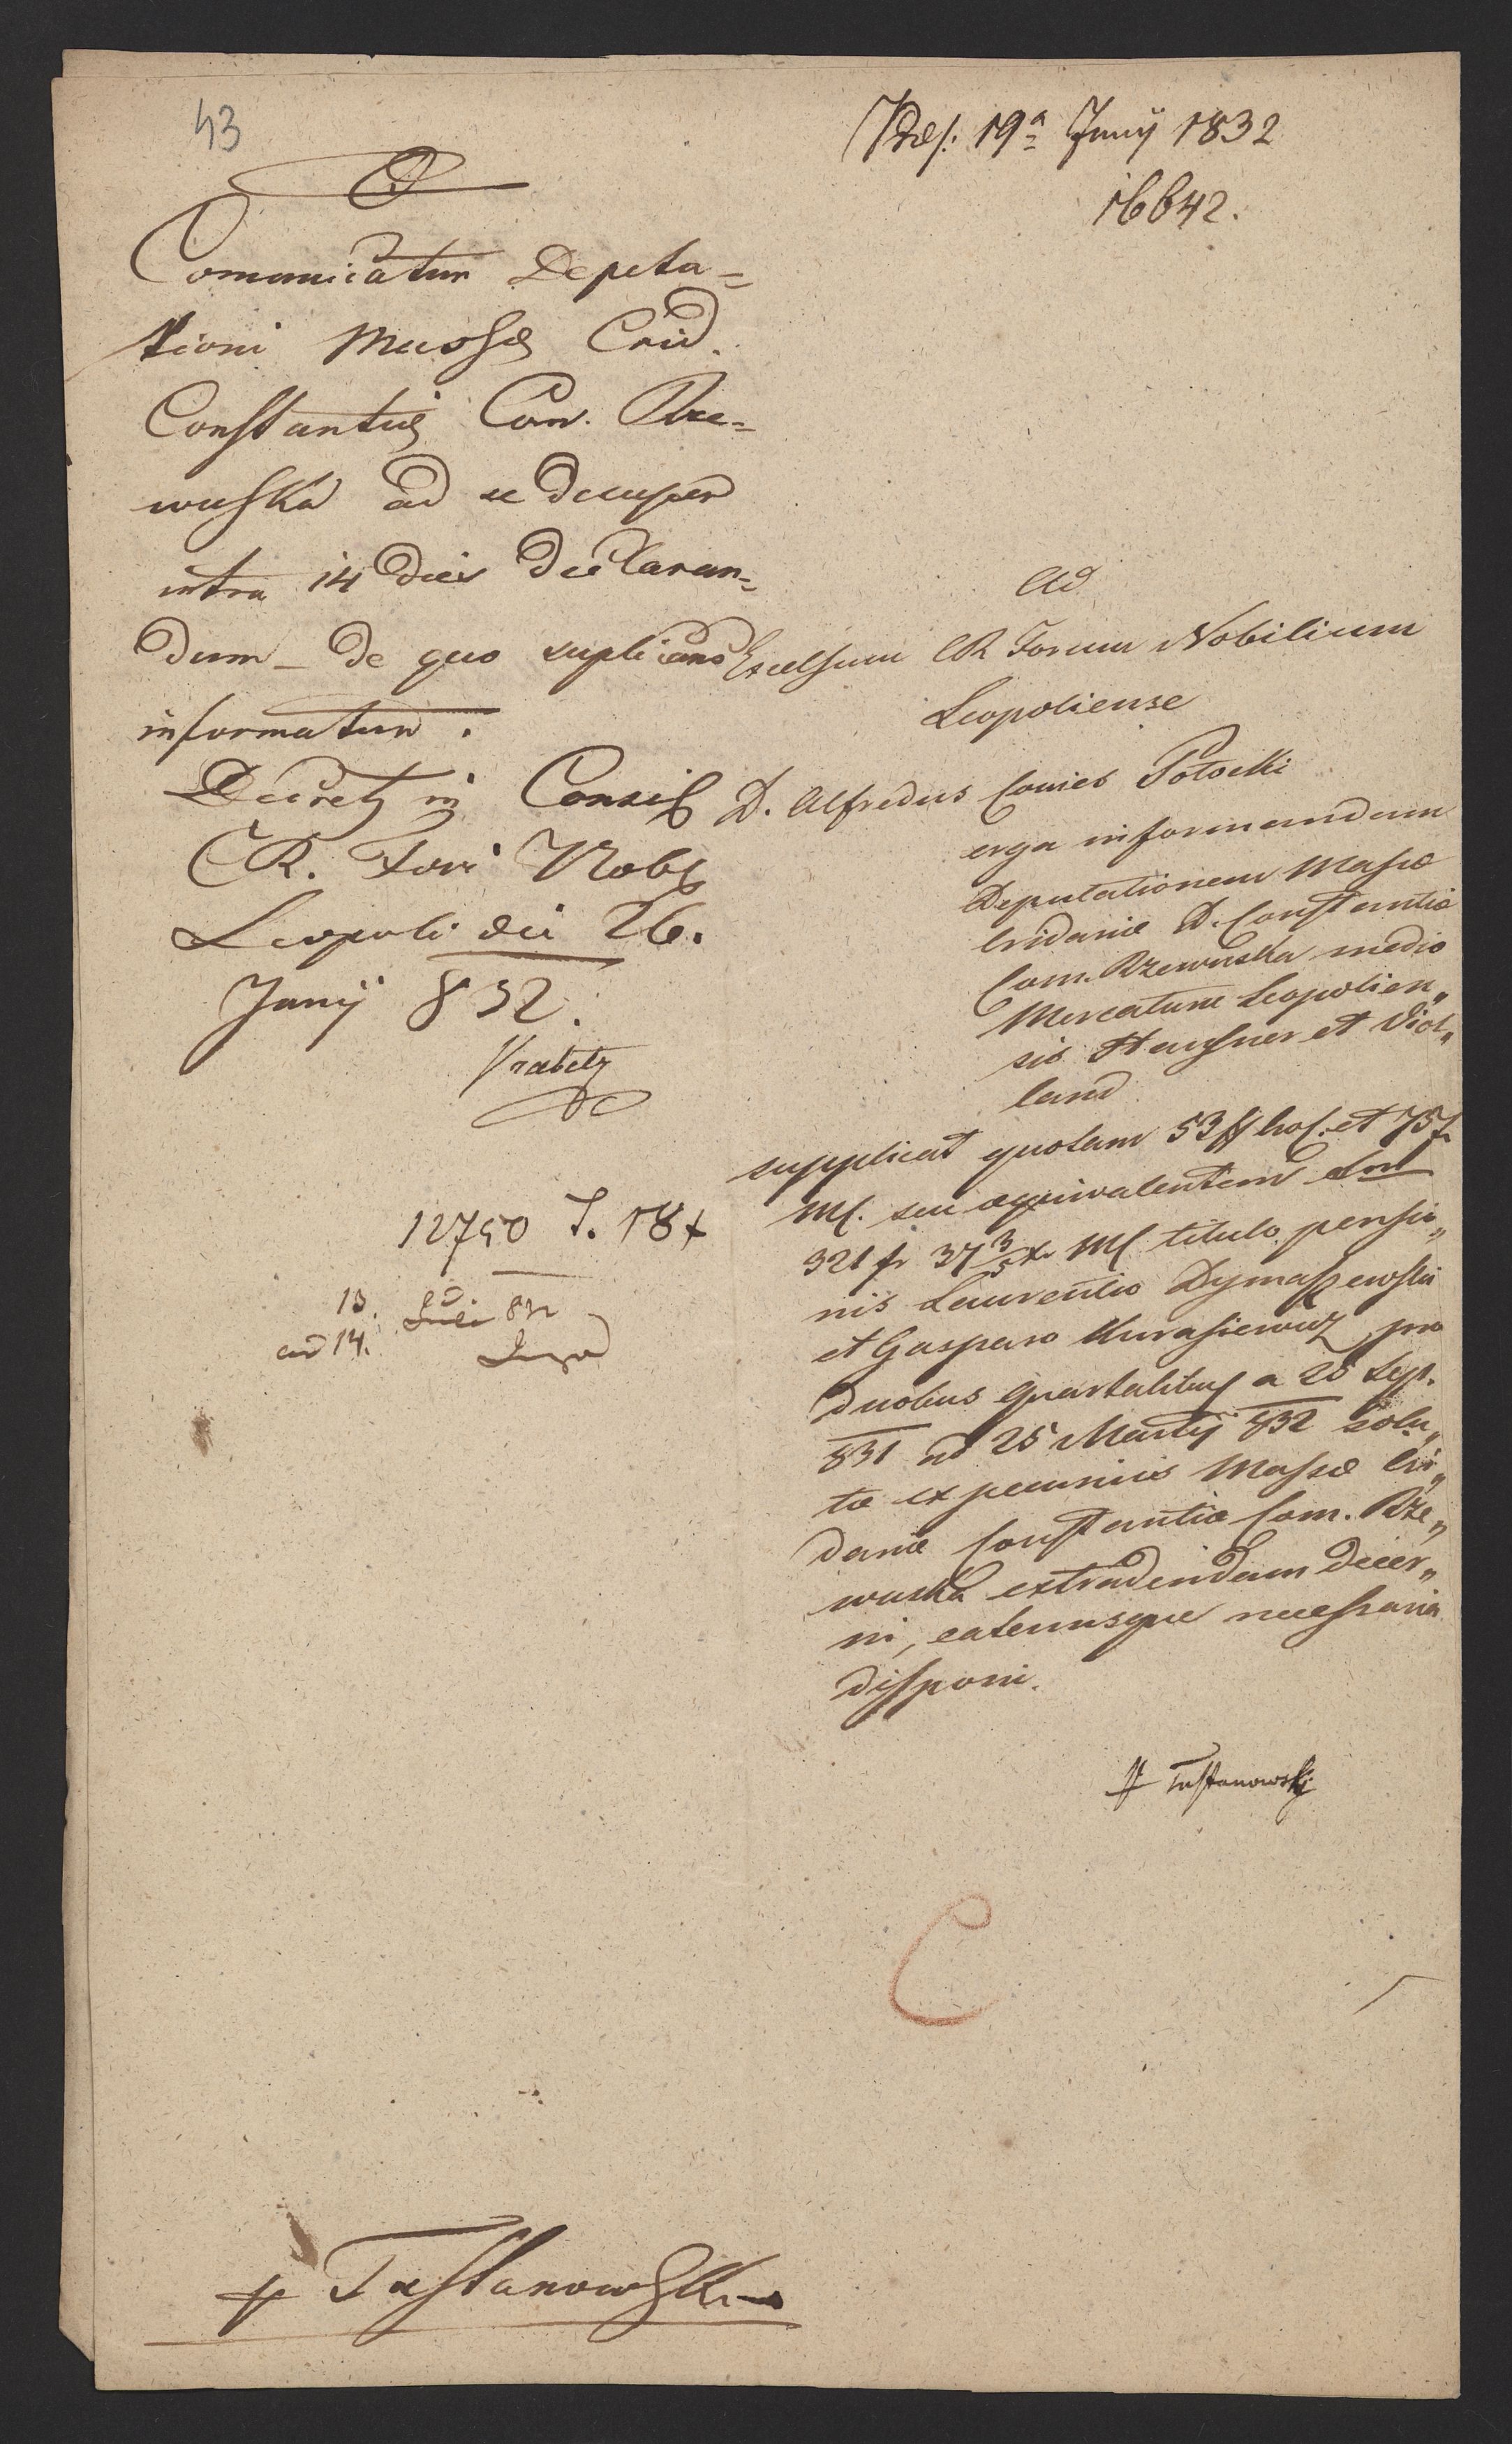 43
Præs: 19ª Junÿ 1832
16642.
Comunicatur Deputa=
tioni Massæ Crid.
Constantiæ Com. Rze=
wuska ad se desuper
intra 14 dies declaran=
dum – de quo suplicans
informatur.
Decret in Consil
CR. Fori Nobb
Leopoli die 26.
Junÿ 832.
12750 T. 18 x
13.
ad 14.
Ad
Excelsum CR Forum Nobilium
Leopoliense
D. Alfredus Comes Potocki
erga informandam
Deputationem Massæ
Cridariæ D. Constantiæ
Com. Rzewuska medio
Mercaturæ Leopolien„
sis Hausner et Viol„
land
supplicat quotam 53 # hol. et 75 f
Mf. seu æquivalentem
321 fr 37 3/5 xr Mf titulo pensio„
nis Laurentio Dymaszewski
et Gasparo Kurasiewicz pro
duobus quartalibus a 25 Sep.
831 ad 25 Martÿ 832 solu„
tæ ex pecuniis Massæ Cri„
dariæ Constantiæ Com. Rze„
wuska extradendam decer„
ni, eatenusque necessaria
disponi.
Tustanowski
C
Tustanowski